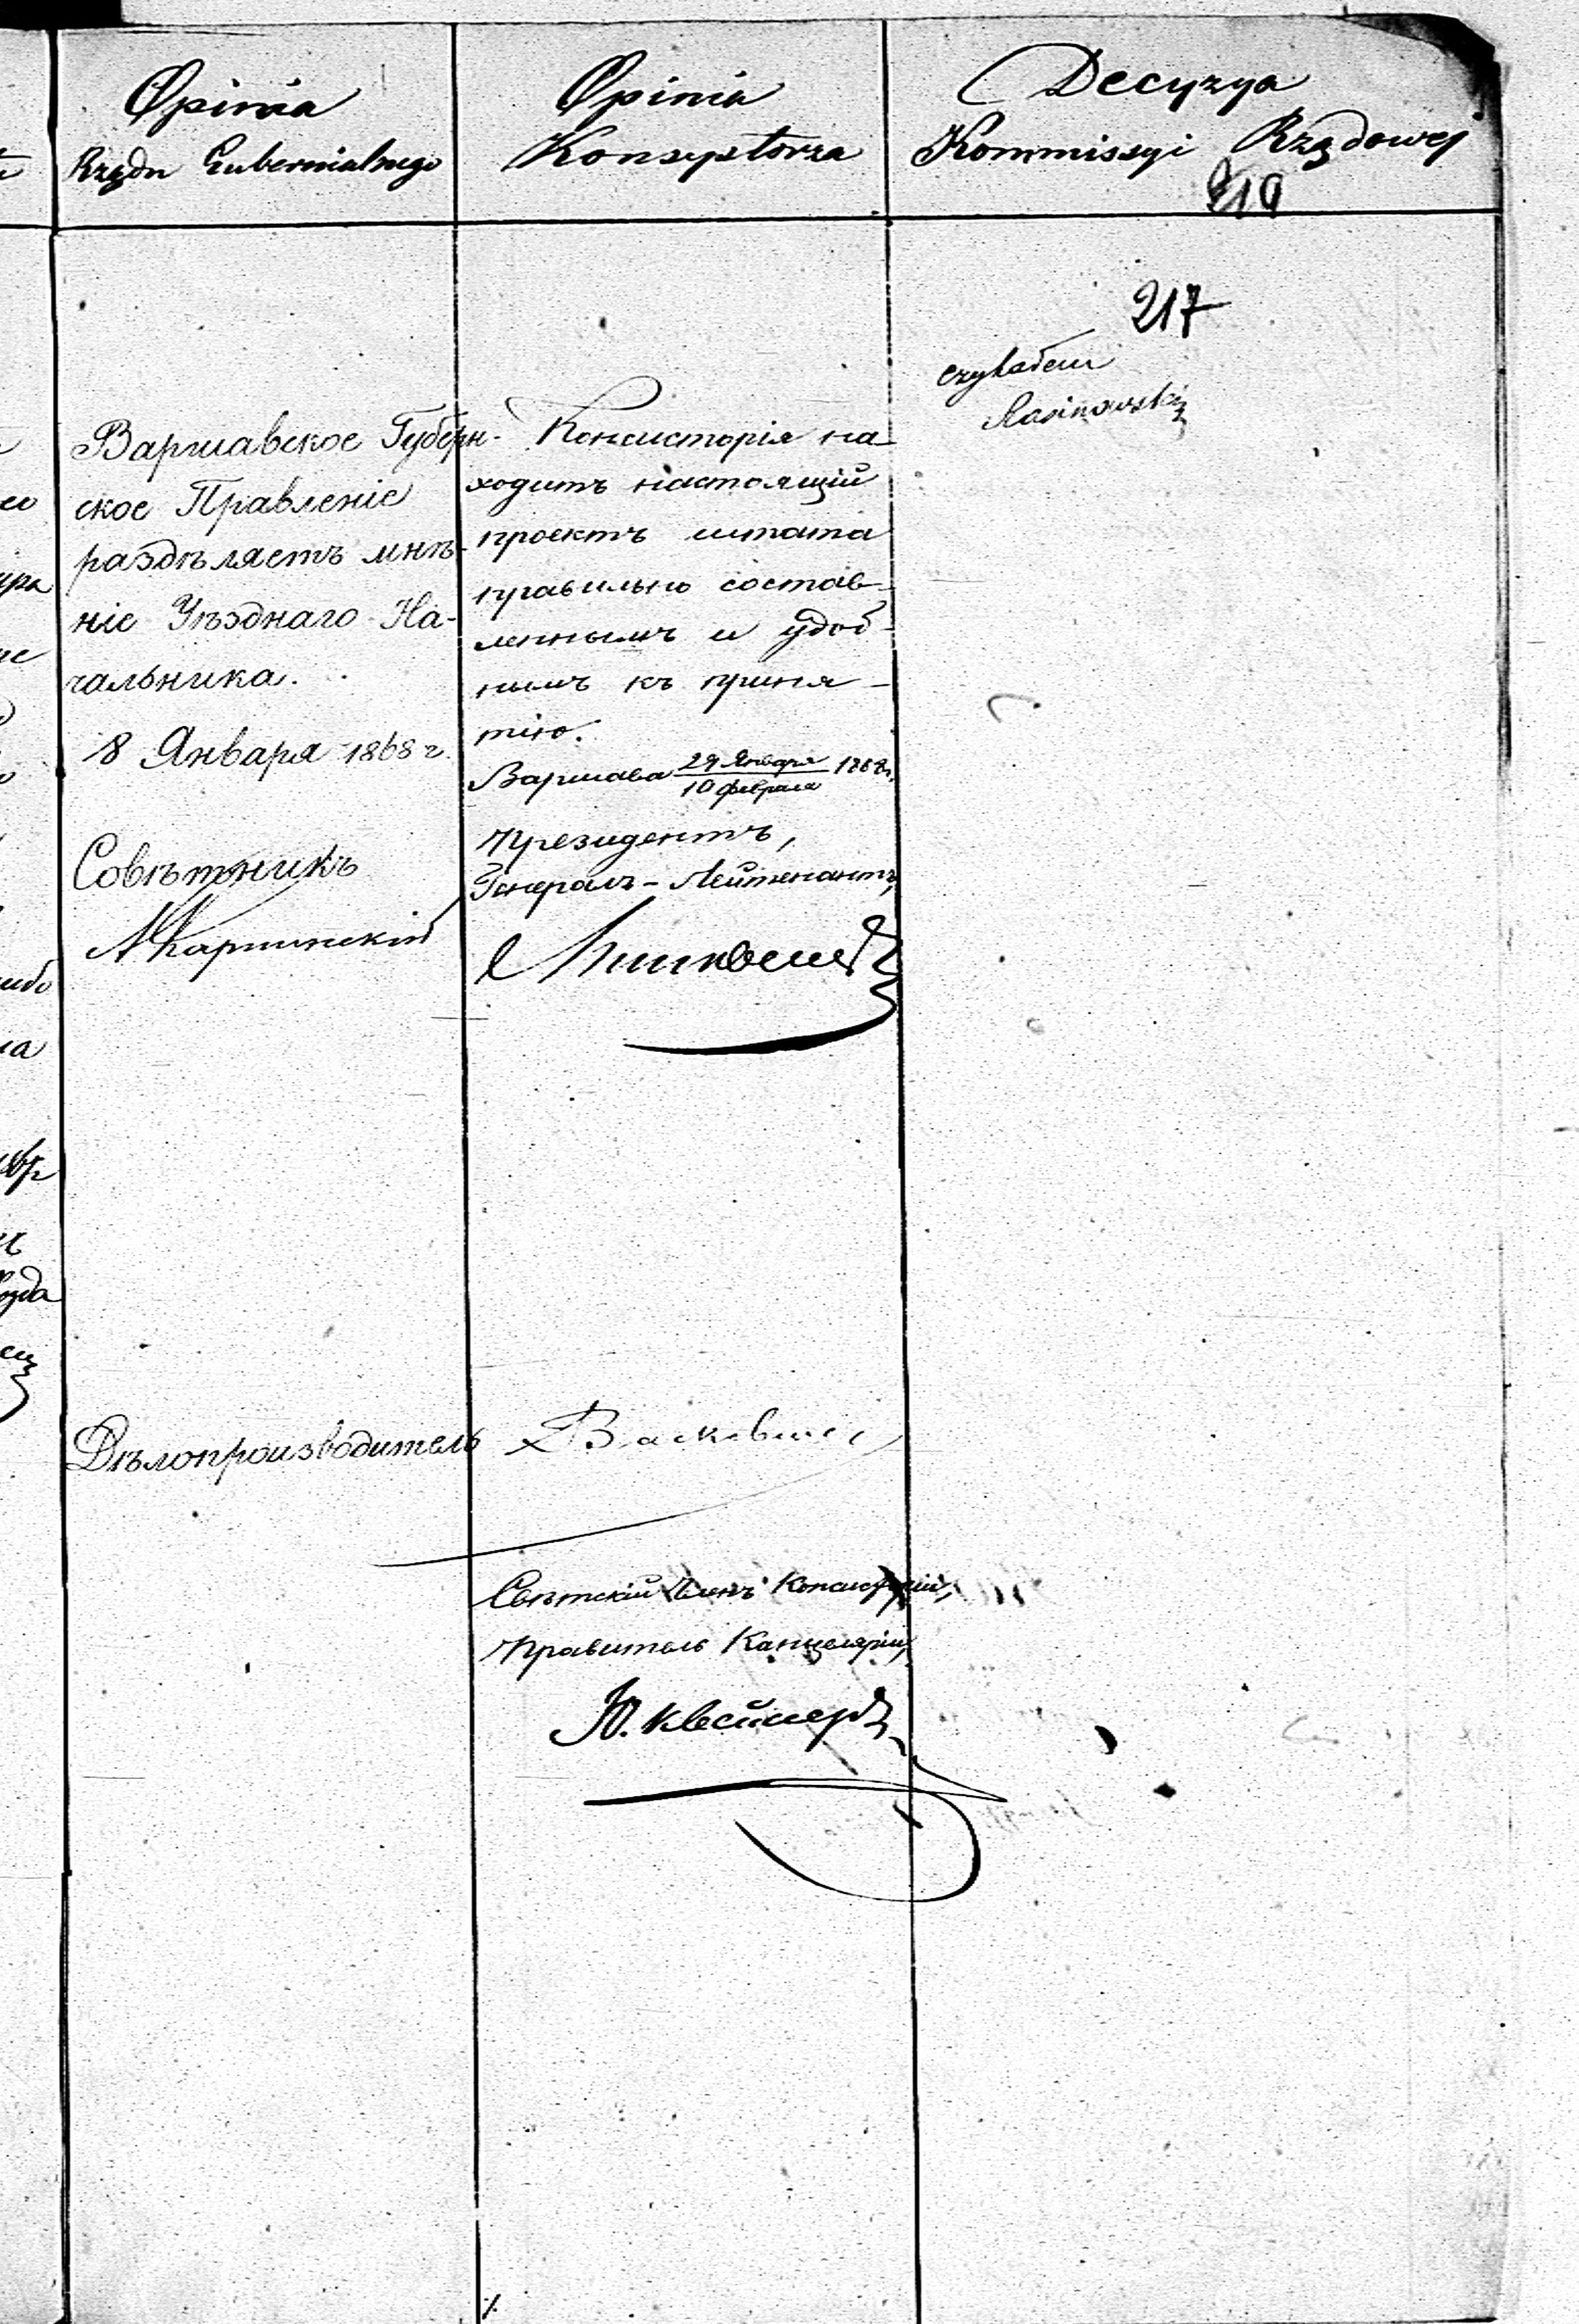 Opinia
Rządu Gubernialnego
Opinia
Konsystorza
Decyzya
Kommissyi Rządowej
217
czytałem
Варшавское Губерн-
ское Правленіе
раздѣляетъ мнѣ-
ніе Уѣзднаго На-
чальника.
18 Января 1868 г.
Совѣтникъ
Консисторія на-
ходитъ настоящій
проектъ штата
правильно состав-
леннымъ и удоб-
нымъ къ приня-
тію.
Варшава 29 Января / 10 февраля 1868 г.
Президентъ,
Генералъ-Лейтенантъ,
Дѣлопроизводитель
Свѣтскій Членъ Консисторіи,
Правитель Канцеляріи,